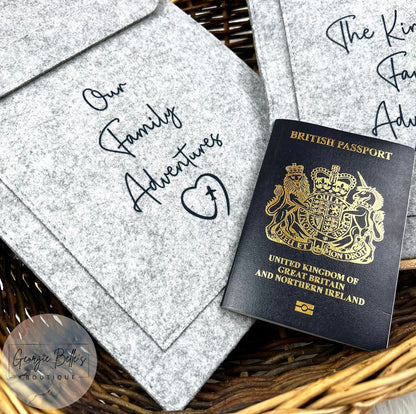 Our
Family
Adventures
The Kin
Family
Adv
BRITISH PASSPORT
DIEU ET MON DROIT
UNITED KINGDOM OF
GREAT BRITAIN
AND NORTHERN IRELAND
Georgie Belle's
BOUTIQUE